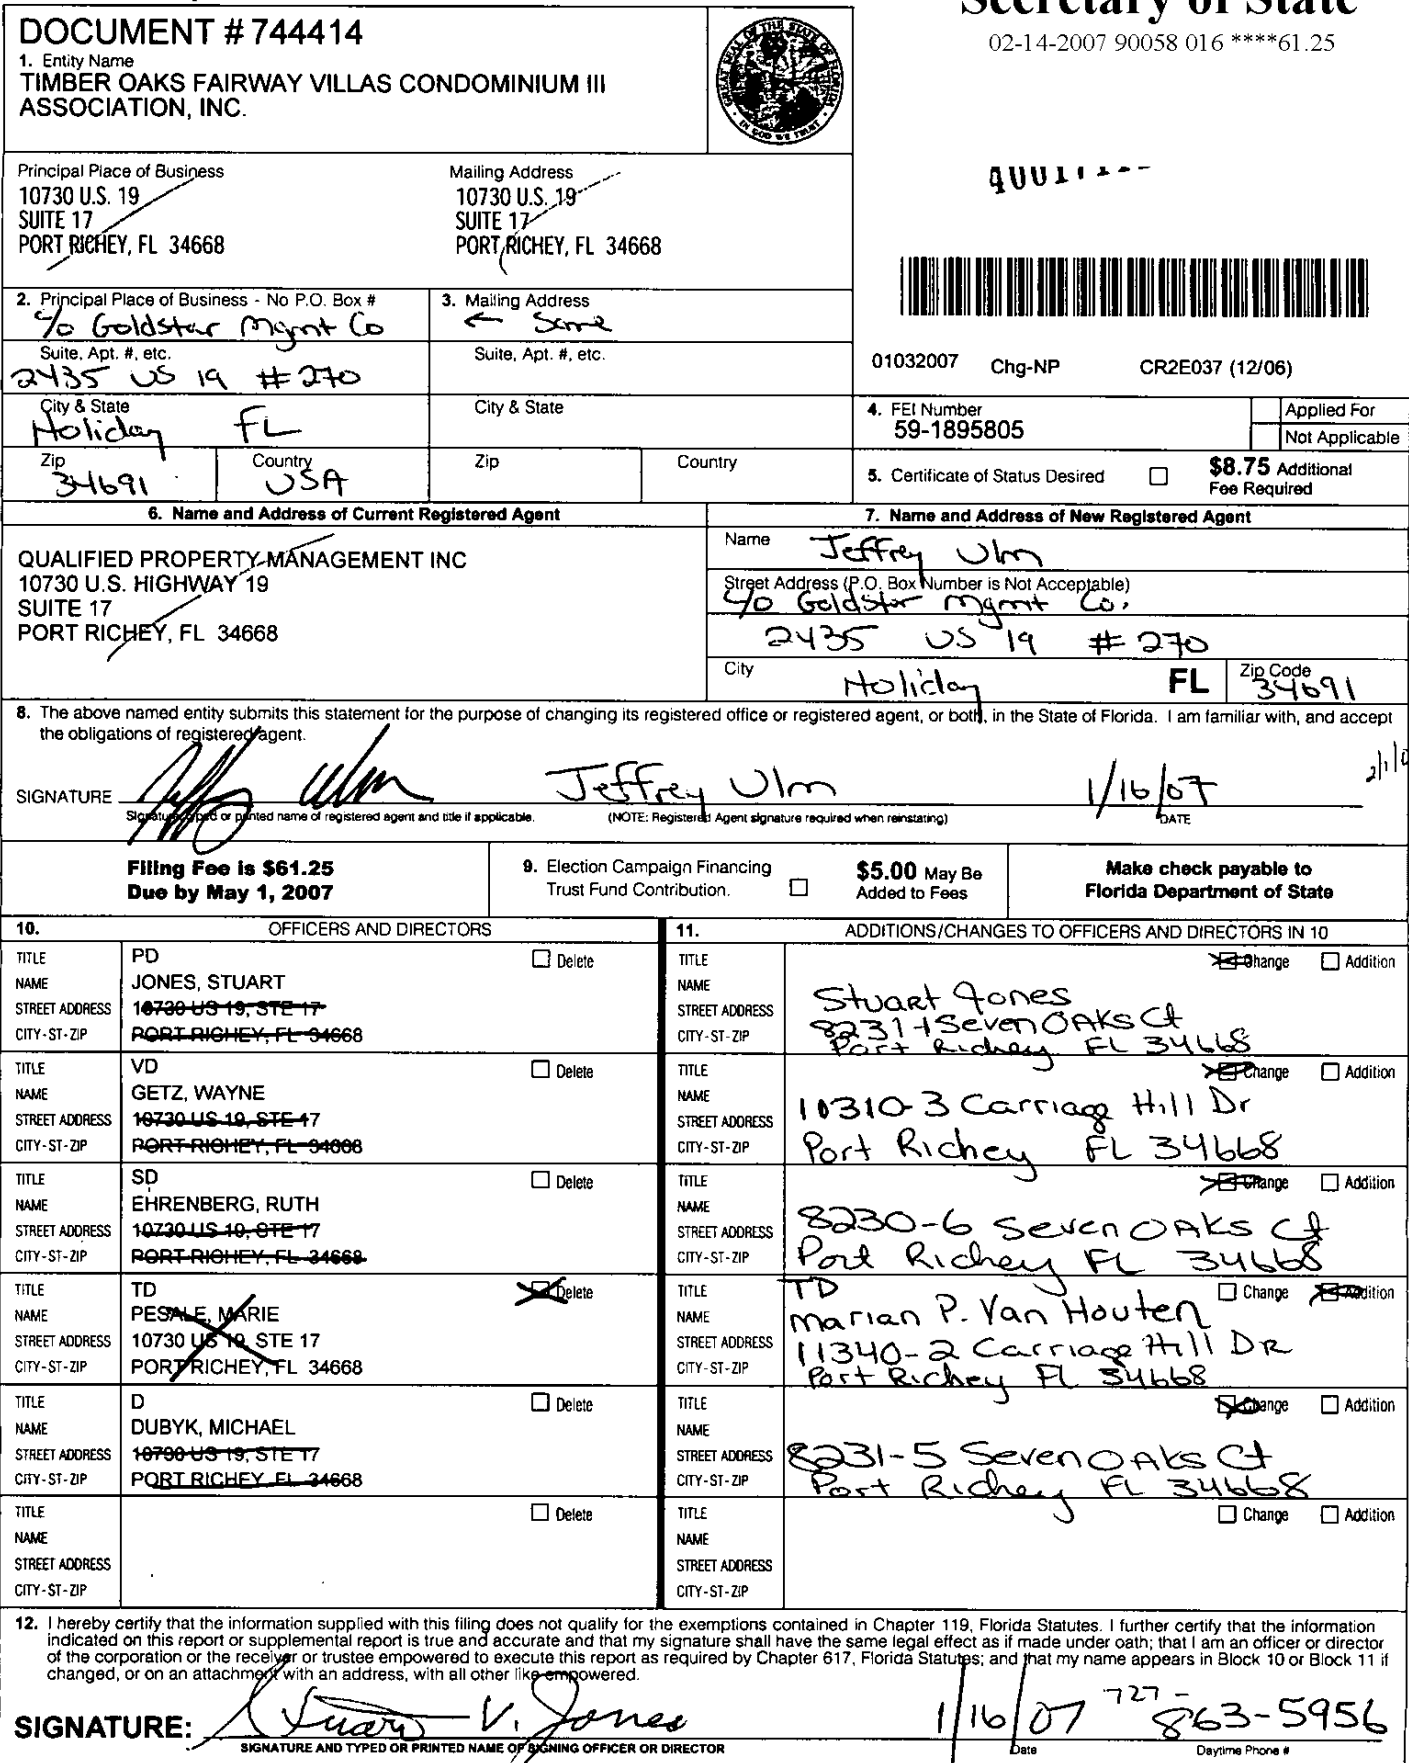 Secretary of State
02-14-2007 90058 016 ****61.25
DOCUMENT # 744414
1. Entity Name
TIMBER OAKS FAIRWAY VILLAS CONDOMINIUM III
ASSOCIATION, INC.
GREAT SEAL OF THE STATE OF FLORIDA
IN GOD WE TRUST
Principal Place of Business
10730 U.S. 19
SUITE 17
PORT RICHEY, FL 34668
Mailing Address
10730 U.S. 19
SUITE 17
PORT RICHEY, FL 34668
2. Principal Place of Business - No P.O. Box #
c/o Goldstar Mgmt Co
3. Mailing Address
← Same
Suite, Apt. #, etc.
2435 US 19 #270
Suite, Apt. #, etc.
City & State
Holiday FL
City & State
Zip
34691
Country
USA
Zip
Country
01032007 Chg-NP CR2E037 (12/06)
4. FEI Number
59-1895805
Applied For
Not Applicable
5. Certificate of Status Desired
$8.75 Additional
Fee Required
6. Name and Address of Current Registered Agent
QUALIFIED PROPERTY MANAGEMENT INC
10730 U.S. HIGHWAY 19
SUITE 17
PORT RICHEY, FL 34668
7. Name and Address of New Registered Agent
Name
Jeffrey Ulm
Street Address (P.O. Box Number is Not Acceptable)
c/o Goldstar Mgmt Co.
2435 US 19 #270
City
Holiday
FL
Zip Code
34691
8. The above named entity submits this statement for the purpose of changing its registered office or registered agent, or both, in the State of Florida. I am familiar with, and accept
the obligations of registered agent.
SIGNATURE Jeffrey Ulm Jeffrey Ulm 1/16/07
Signature, typed or printed name of registered agent and title if applicable. (NOTE: Registered Agent signature required when reinstating) DATE
Filing Fee is $61.25
Due by May 1, 2007
9. Election Campaign Financing
Trust Fund Contribution.
$5.00 May Be
Added to Fees
Make check payable to
Florida Department of State
10. OFFICERS AND DIRECTORS
11. ADDITIONS/CHANGES TO OFFICERS AND DIRECTORS IN 10
TITLE PD Delete
NAME JONES, STUART
STREET ADDRESS 10730 US 19, STE 17
CITY-ST-ZIP PORT RICHEY, FL 34668
TITLE Change Addition
NAME Stuart Jones
STREET ADDRESS 8231-1 Seven OAKS Ct
CITY-ST-ZIP Port Richey FL 34668
TITLE VD Delete
NAME GETZ, WAYNE
STREET ADDRESS 10730 US 19, STE 17
CITY-ST-ZIP PORT RICHEY, FL 34668
TITLE Change Addition
NAME
STREET ADDRESS 10310-3 Carriage Hill Dr
CITY-ST-ZIP Port Richey FL 34668
TITLE SD Delete
NAME EHRENBERG, RUTH
STREET ADDRESS 10730 US 19, STE 17
CITY-ST-ZIP PORT RICHEY, FL 34668
TITLE Change Addition
NAME
STREET ADDRESS 8230-6 Seven OAKs Ct
CITY-ST-ZIP Port Richey FL 34668
TITLE TD Delete
NAME PESALE, MARIE
STREET ADDRESS 10730 US 19, STE 17
CITY-ST-ZIP PORT RICHEY, FL 34668
TITLE TD Change Addition
NAME Marian P. Van Houten
STREET ADDRESS 11340-2 Carriage Hill DR
CITY-ST-ZIP Port Richey FL 34668
TITLE D Delete
NAME DUBYK, MICHAEL
STREET ADDRESS 10730 US 19, STE 17
CITY-ST-ZIP PORT RICHEY, FL 34668
TITLE Change Addition
NAME
STREET ADDRESS 8231-5 Seven OAks Ct
CITY-ST-ZIP Port Richey FL 34668
TITLE Delete
NAME
STREET ADDRESS
CITY-ST-ZIP
TITLE Change Addition
NAME
STREET ADDRESS
CITY-ST-ZIP
12. I hereby certify that the information supplied with this filing does not qualify for the exemptions contained in Chapter 119, Florida Statutes. I further certify that the information
indicated on this report or supplemental report is true and accurate and that my signature shall have the same legal effect as if made under oath; that I am an officer or director
of the corporation or the receiver or trustee empowered to execute this report as required by Chapter 617, Florida Statutes; and that my name appears in Block 10 or Block 11 if
changed, or on an attachment with an address, with all other like empowered.
SIGNATURE: Stuart V. Jones 1/16/07 727-863-5956
SIGNATURE AND TYPED OR PRINTED NAME OF SIGNING OFFICER OR DIRECTOR Date Daytime Phone #